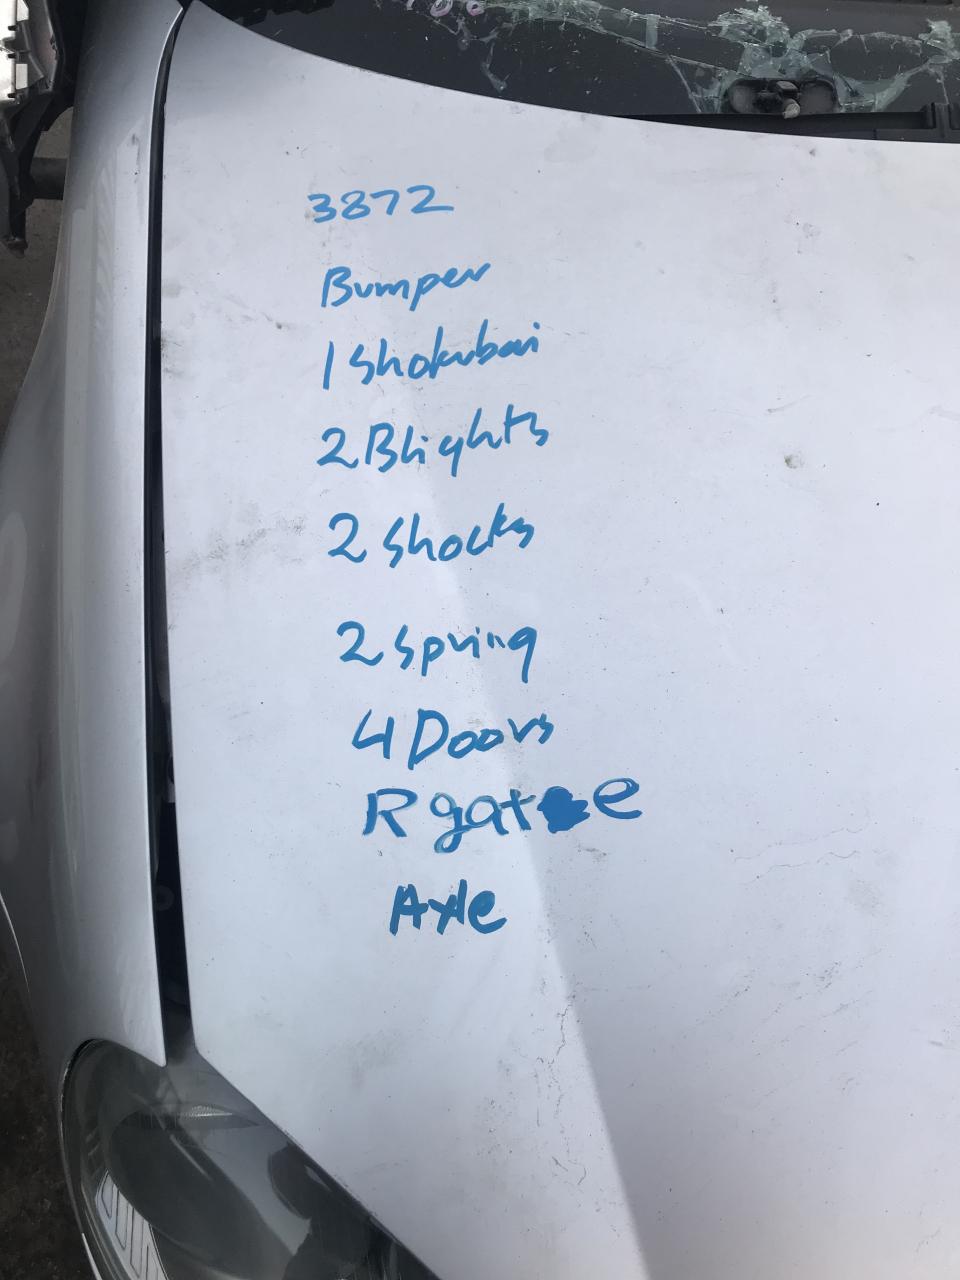 3872
Bumper
1 Shokubai
2 Blights
2 Shocks
2 Spring
4 Doors
R gate
Axle